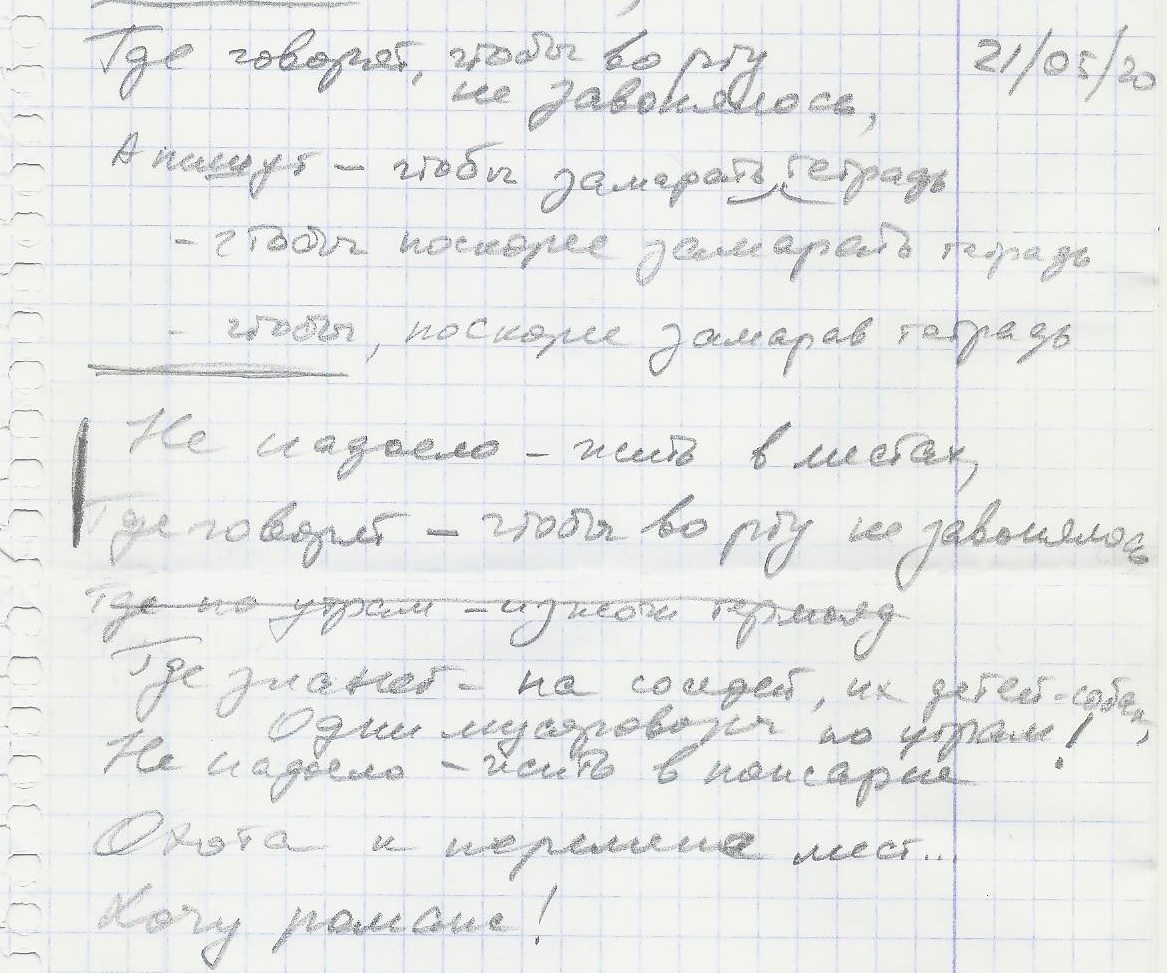 Где говорят, чтобы во рту 21/05/20
не завонялось,
А пишут – чтобы замарать тетрадь
– чтобы поскорее замарать тетрадь
– чтобы, поскорее замарав тетрадь
Не надоело – жить в местах,
Где говорят – чтобы во рту не завонялось
Где по утрам –
Где знают – на соседей, их детей-собак,
Одни мусоровозы по утрам!
Не надоело – жить в
Охота к перемене мест...
Хочу романс!